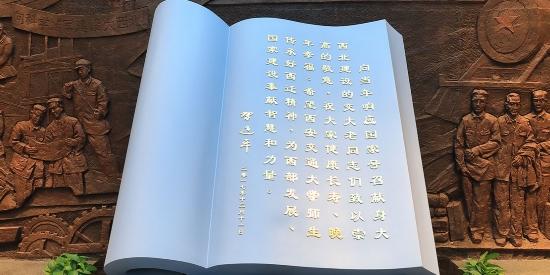 向当年响应国家号召献身大
西北建设的交大老同志们致以崇
高的敬意，祝大家健康长寿、晚
年幸福。希望西安交通大学师生
传承好西迁精神，为西部发展、
国家建设奉献智慧和力量。
习近平
二〇一七年十二月十一日